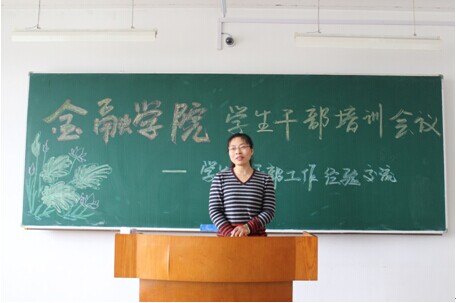 金融学院 学生干部培训会议
—学 部工作经验交流